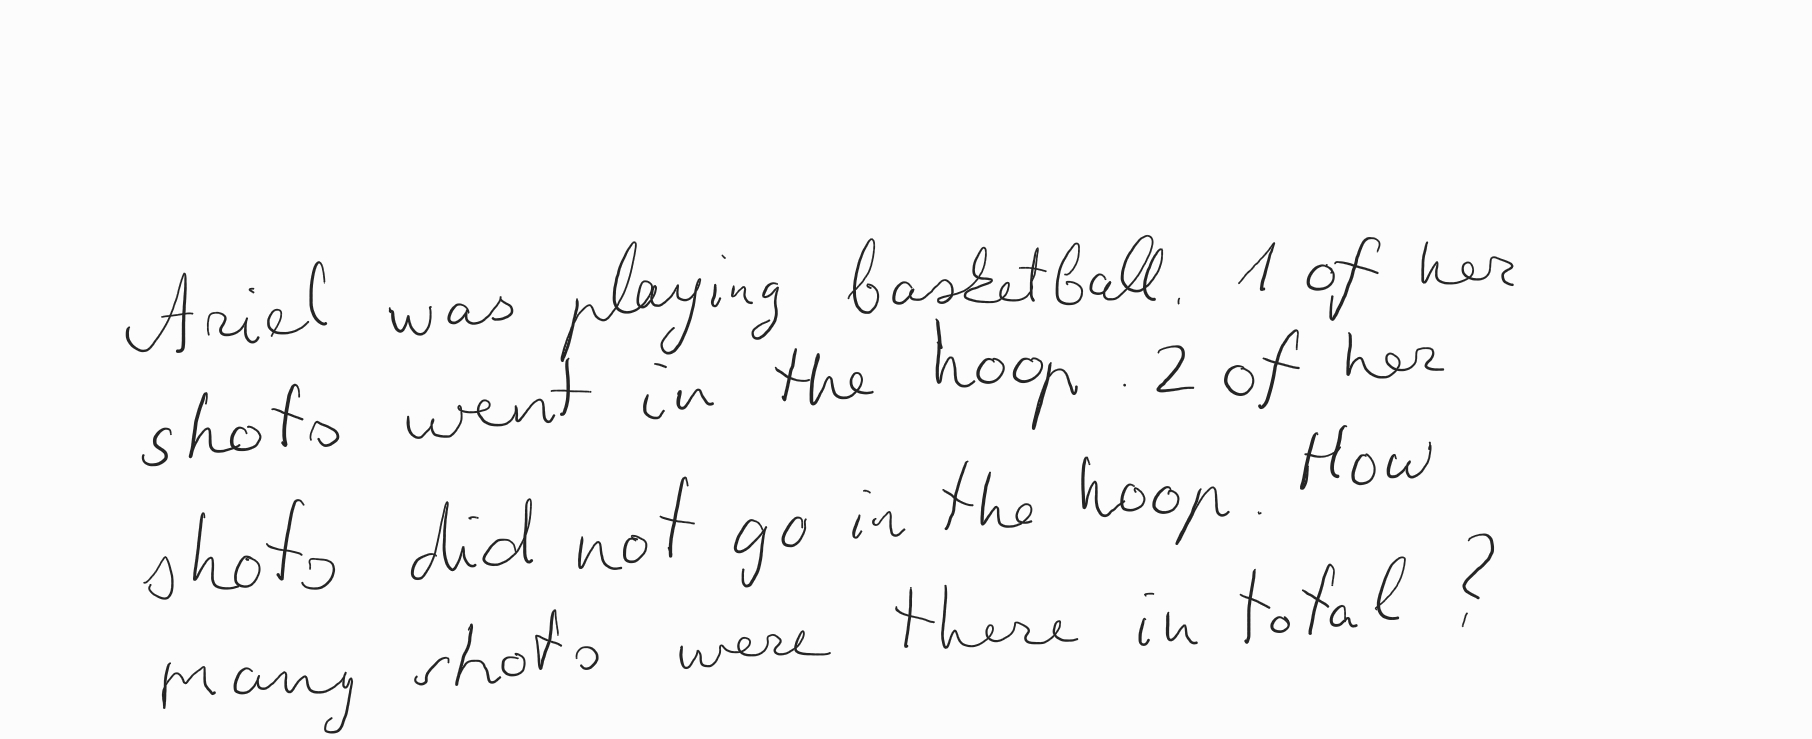 Ariel was playing basketball. 1 of her
shots went in the hoop. 2 of her
shots did not go in the hoop. How
many shots were there in total?